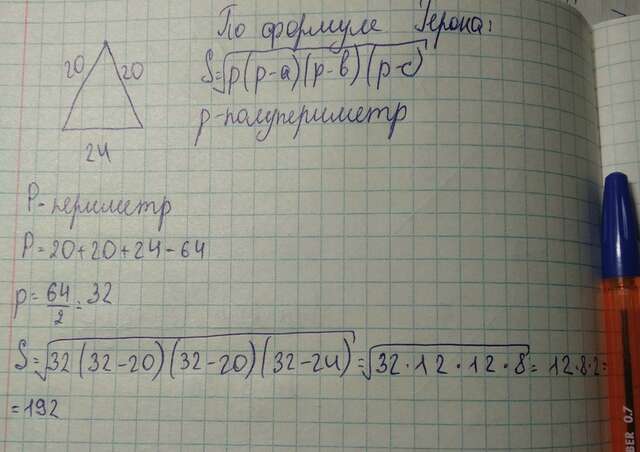 По формуле Герона:
S=√p(p-a)(p-b)(p-c)
p-полупериметр
20 20
24
P-периметр
P=20+20+24-64
p=64/2=32
S=√32(32-20)(32-20)(32-24)=√32·12·12·8=12·8·2=
=192
BER 0.7